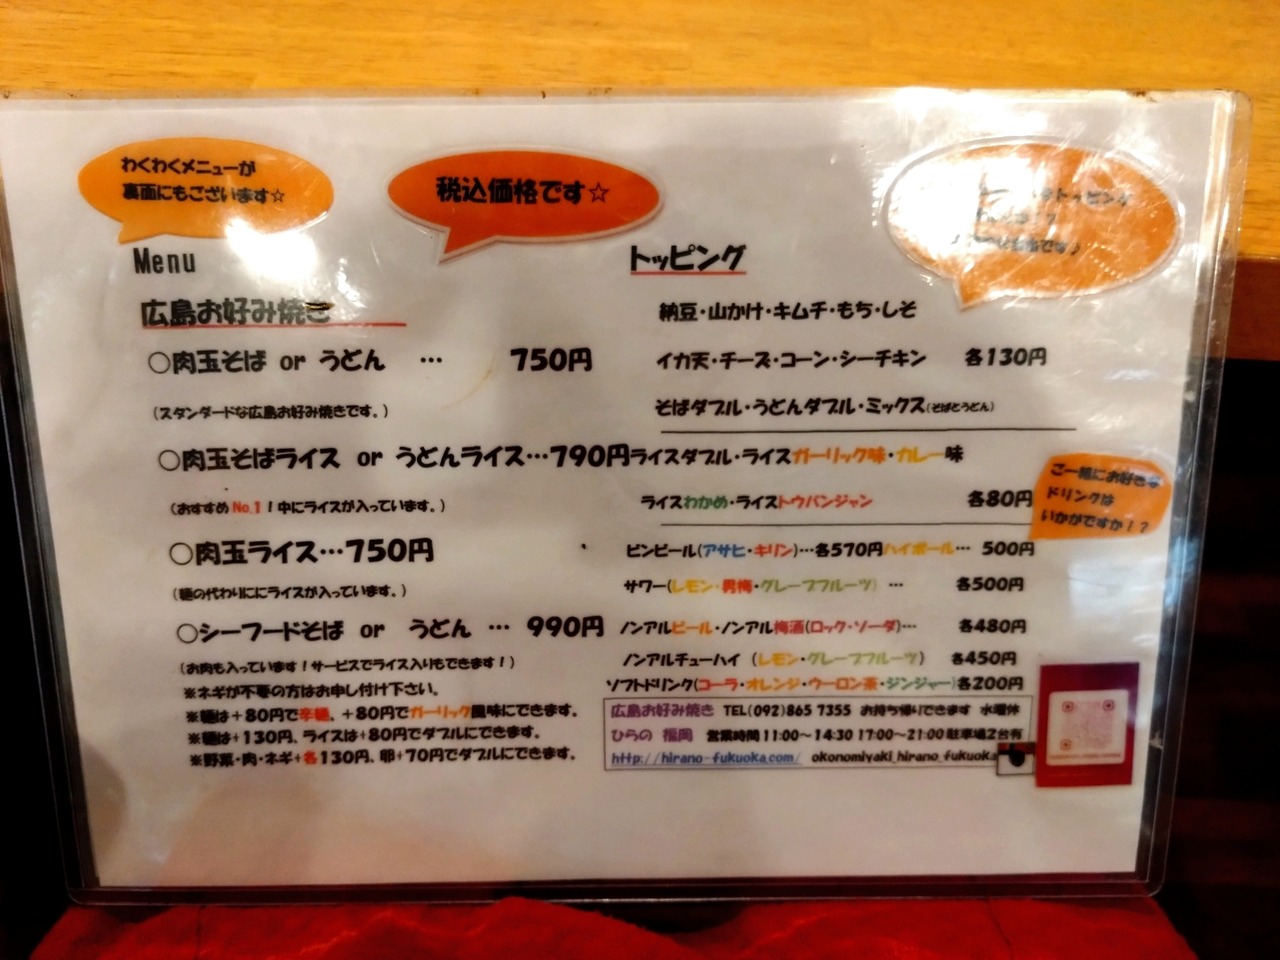 わくわくメニューが
裏面にもございます☆
税込価格です☆
トッピング
です♪
Menu
広島お好み焼き
○肉玉そば or うどん … 750円
(スタンダードな広島お好み焼きです。)
○肉玉そばライス or うどんライス…790円
(おすすめNo.1！中にライスが入っています。)
○肉玉ライス…750円
(麺の代わりににライスが入っています。)
○シーフードそば or うどん … 990円
(お肉も入っています！サービスでライス入りもできます！)
※ネギが不要の方はお申し付け下さい。
※麺は+80円で辛麺、+80円でガーリック風味にできます。
※麺は+130円、ライスは+80円でダブルにできます。
※野菜・肉・ネギ+各130円、卵+70円でダブルにできます。
トッピング
納豆・山かけ・キムチ・もち・しそ
イカ天・チーズ・コーン・シーチキン 各130円
そばダブル・うどんダブル・ミックス(そばとうどん)
ライスダブル・ライスガーリック味・カレー味
ライスわかめ・ライストウバンジャン 各80円
ご一緒にお好きな
ドリンクは
いかがですか！？
ビンビール(アサヒ・キリン)…各570円ハイボール… 500円
サワー(レモン・男梅・グレープフルーツ) … 各500円
ノンアルビール・ノンアル梅酒(ロック・ソーダ)… 各480円
ノンアルチューハイ (レモン・グレープフルーツ) 各450円
ソフトドリンク(コーラ・オレンジ・ウーロン茶・ジンジャー)各200円
広島お好み焼き TEL(092)865 7355 お持ち帰りできます 水曜休
ひらの 福岡 営業時間11:00～14:30 17:00～21:00 駐車場2台有
http://hirano-fukuoka.com/ okonomiyaki_hirano_fukuoka